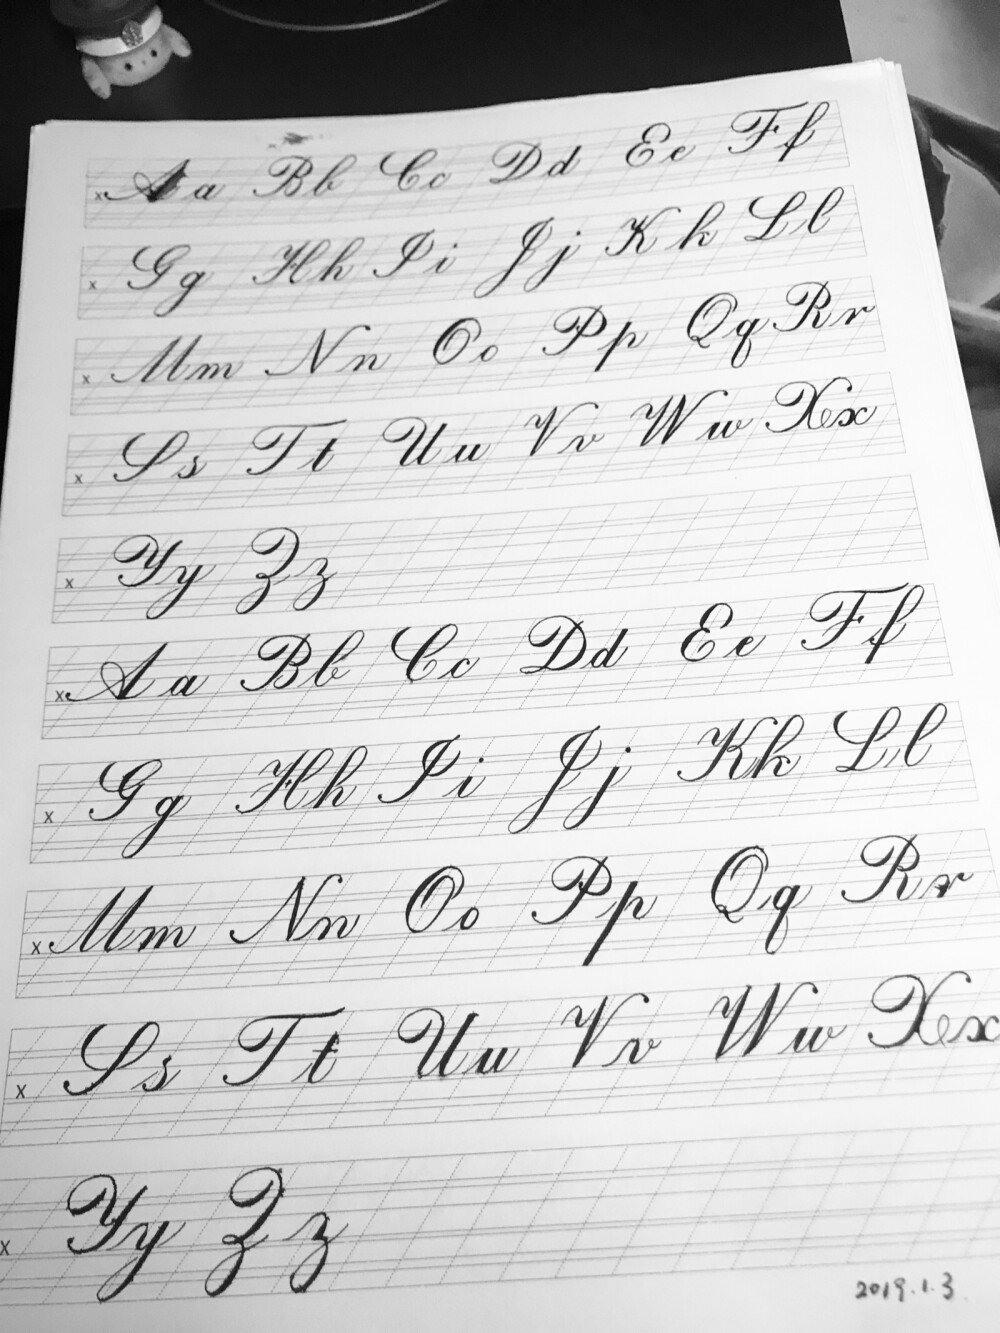 x Aa Bb Cc Dd Ee Ff
x Gg Hh Ii Jj Kk Ll
x Mm Nn Oo Pp Qq Rr
x Ss Tt Uu Vv Ww Xx
x Yy Zz
x Aa Bb Cc Dd Ee Ff
x Gg Hh Ii Jj Kk Ll
x Mm Nn Oo Pp Qq Rr
x Ss Tt Uu Vv Ww Xx
x Yy Zz
2019.1.3